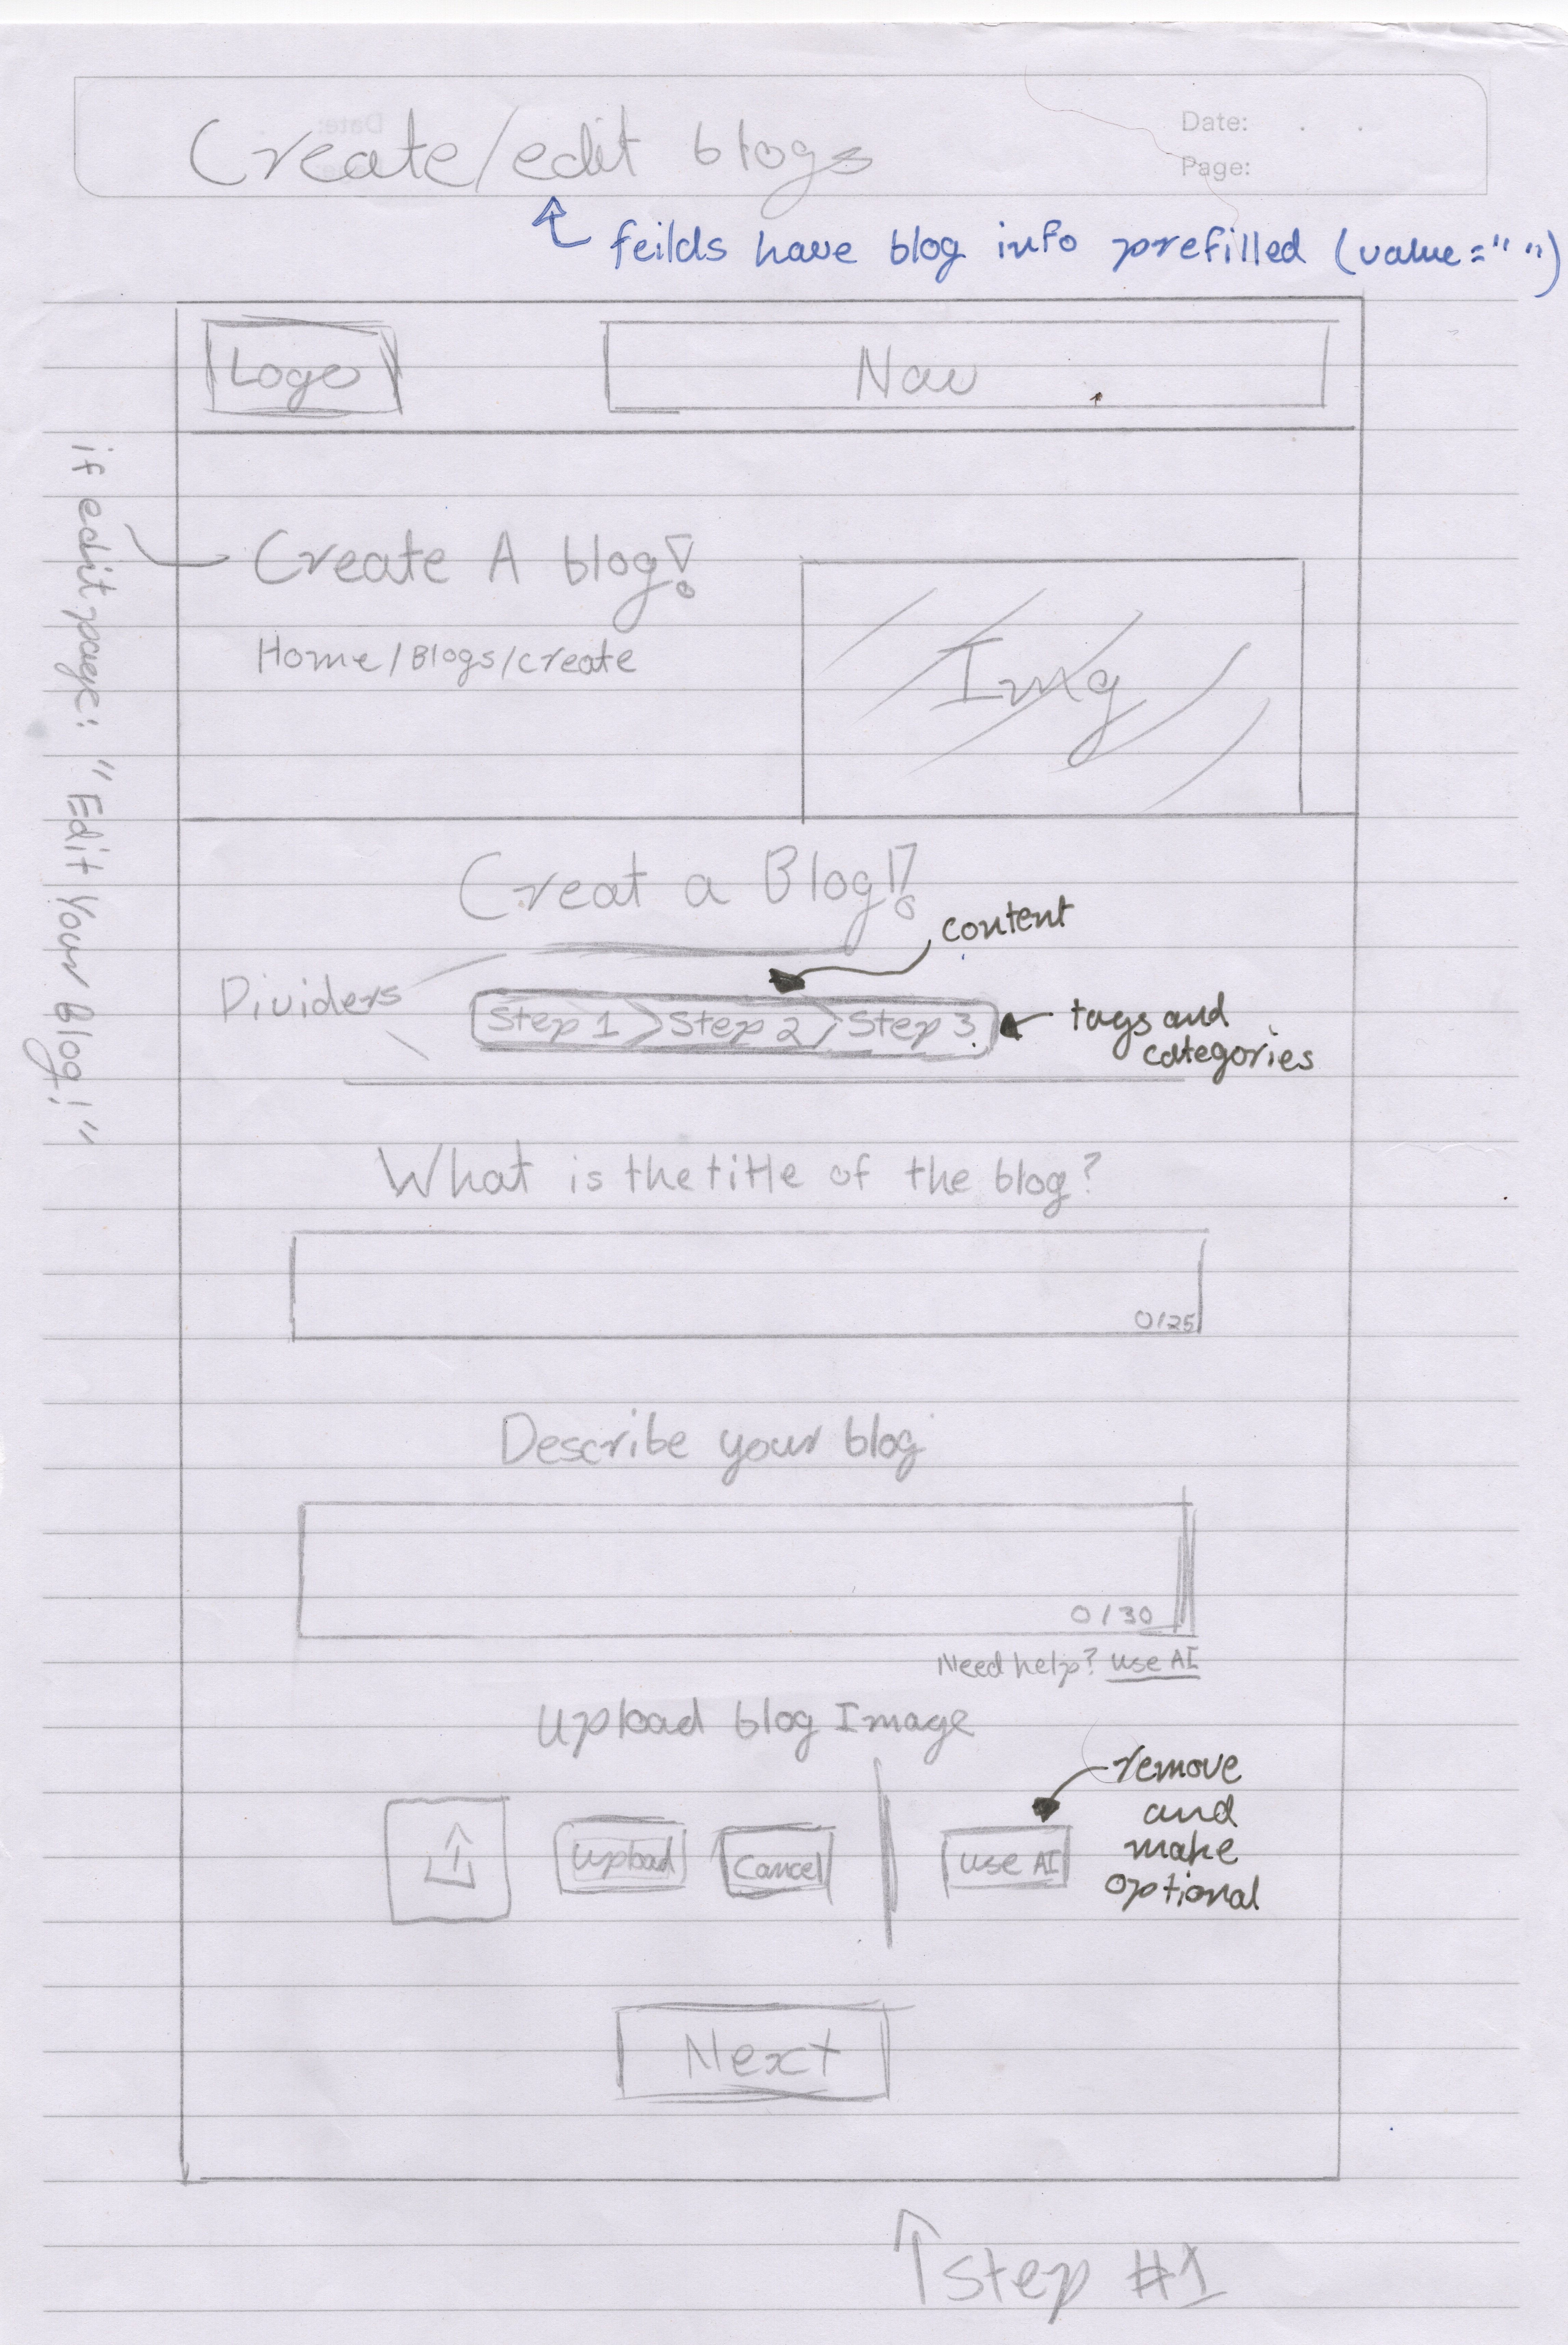 Date:
Page:
Create/edit blogs
feilds have blog info prefilled (value=" ")
Logo
Nav
if edit page: "Edit Your Blog!"
Create A blog!
Home/Blogs/create
Img
Creat a Blog!!
content
Dividers
Step 1 > Step 2 > Step 3
tags and
categories
What is the title of the blog?
0/25
Describe your blog
0/30
Need help? use AI
Upload blog Image
remove
and
make
optional
upload
cancel
use AI
Next
↑ step #1